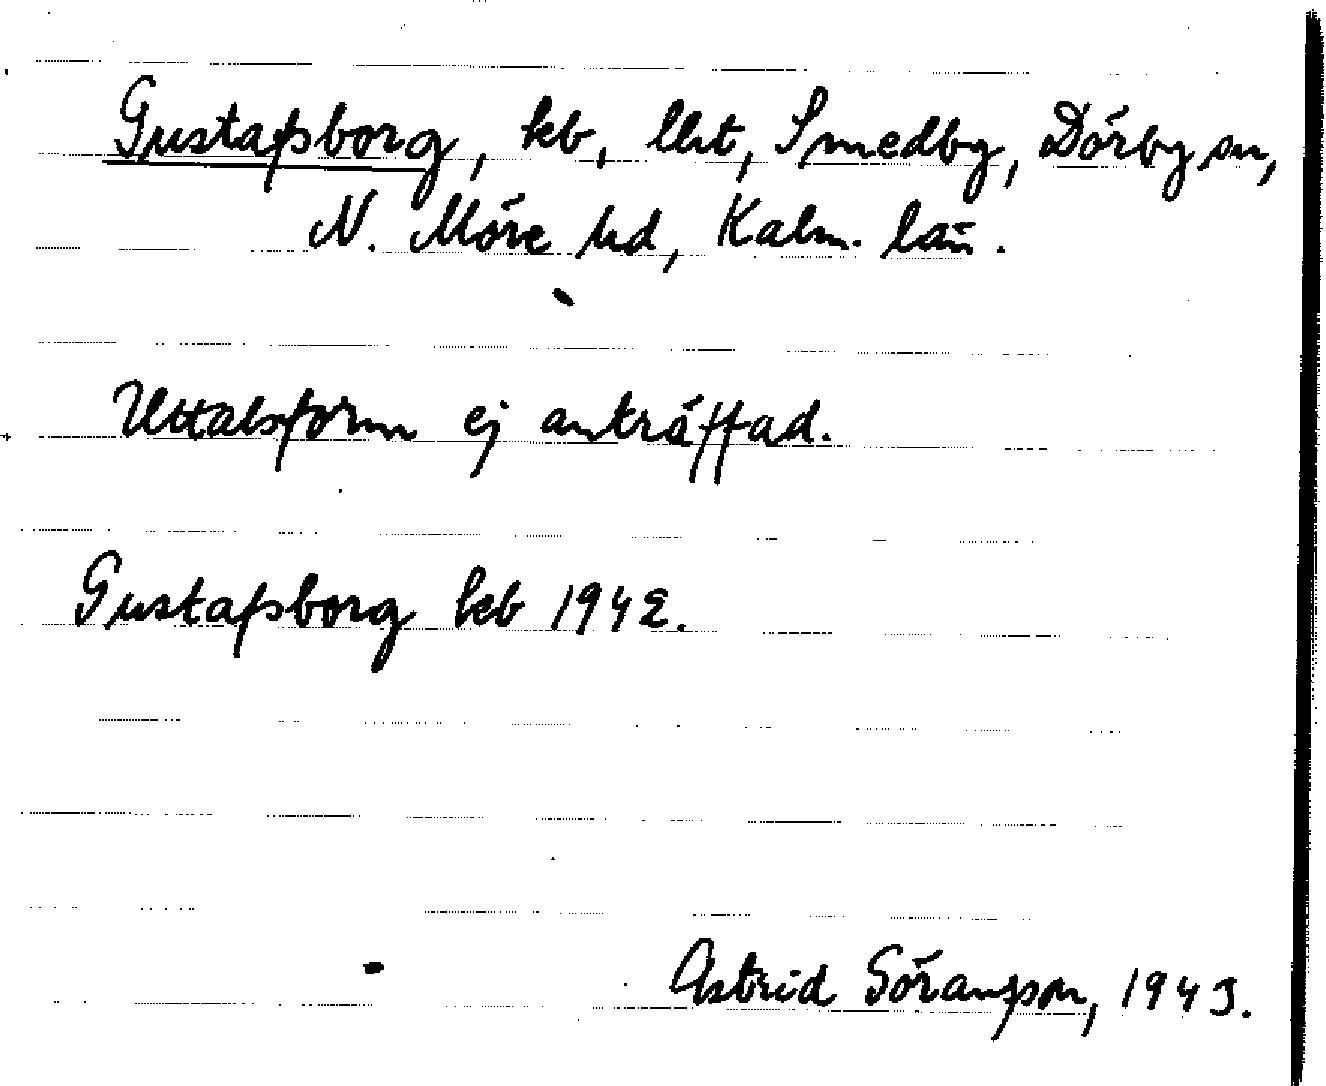 Gustafsborg, keb, lht, Smedby, Dörby sn,
N. Möre hd, Kalm. län.
Uttalsform ej anträffad.
Gustafsborg keb 1942.
Astrid Göransson, 1943.